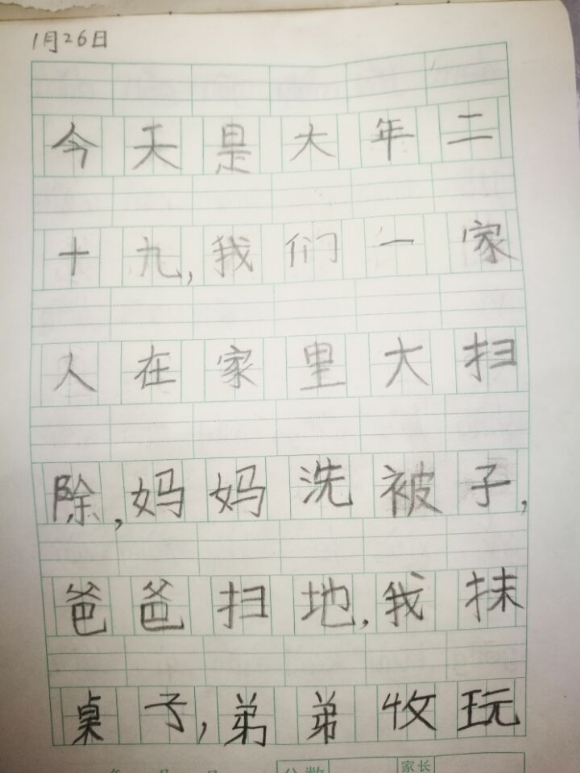 1月26日
今天是大年二
十九,我们一家
人在家里大扫
除,妈妈洗被子,
爸爸扫地,我抹
桌子,弟弟收玩
年 月 日 分数 家长